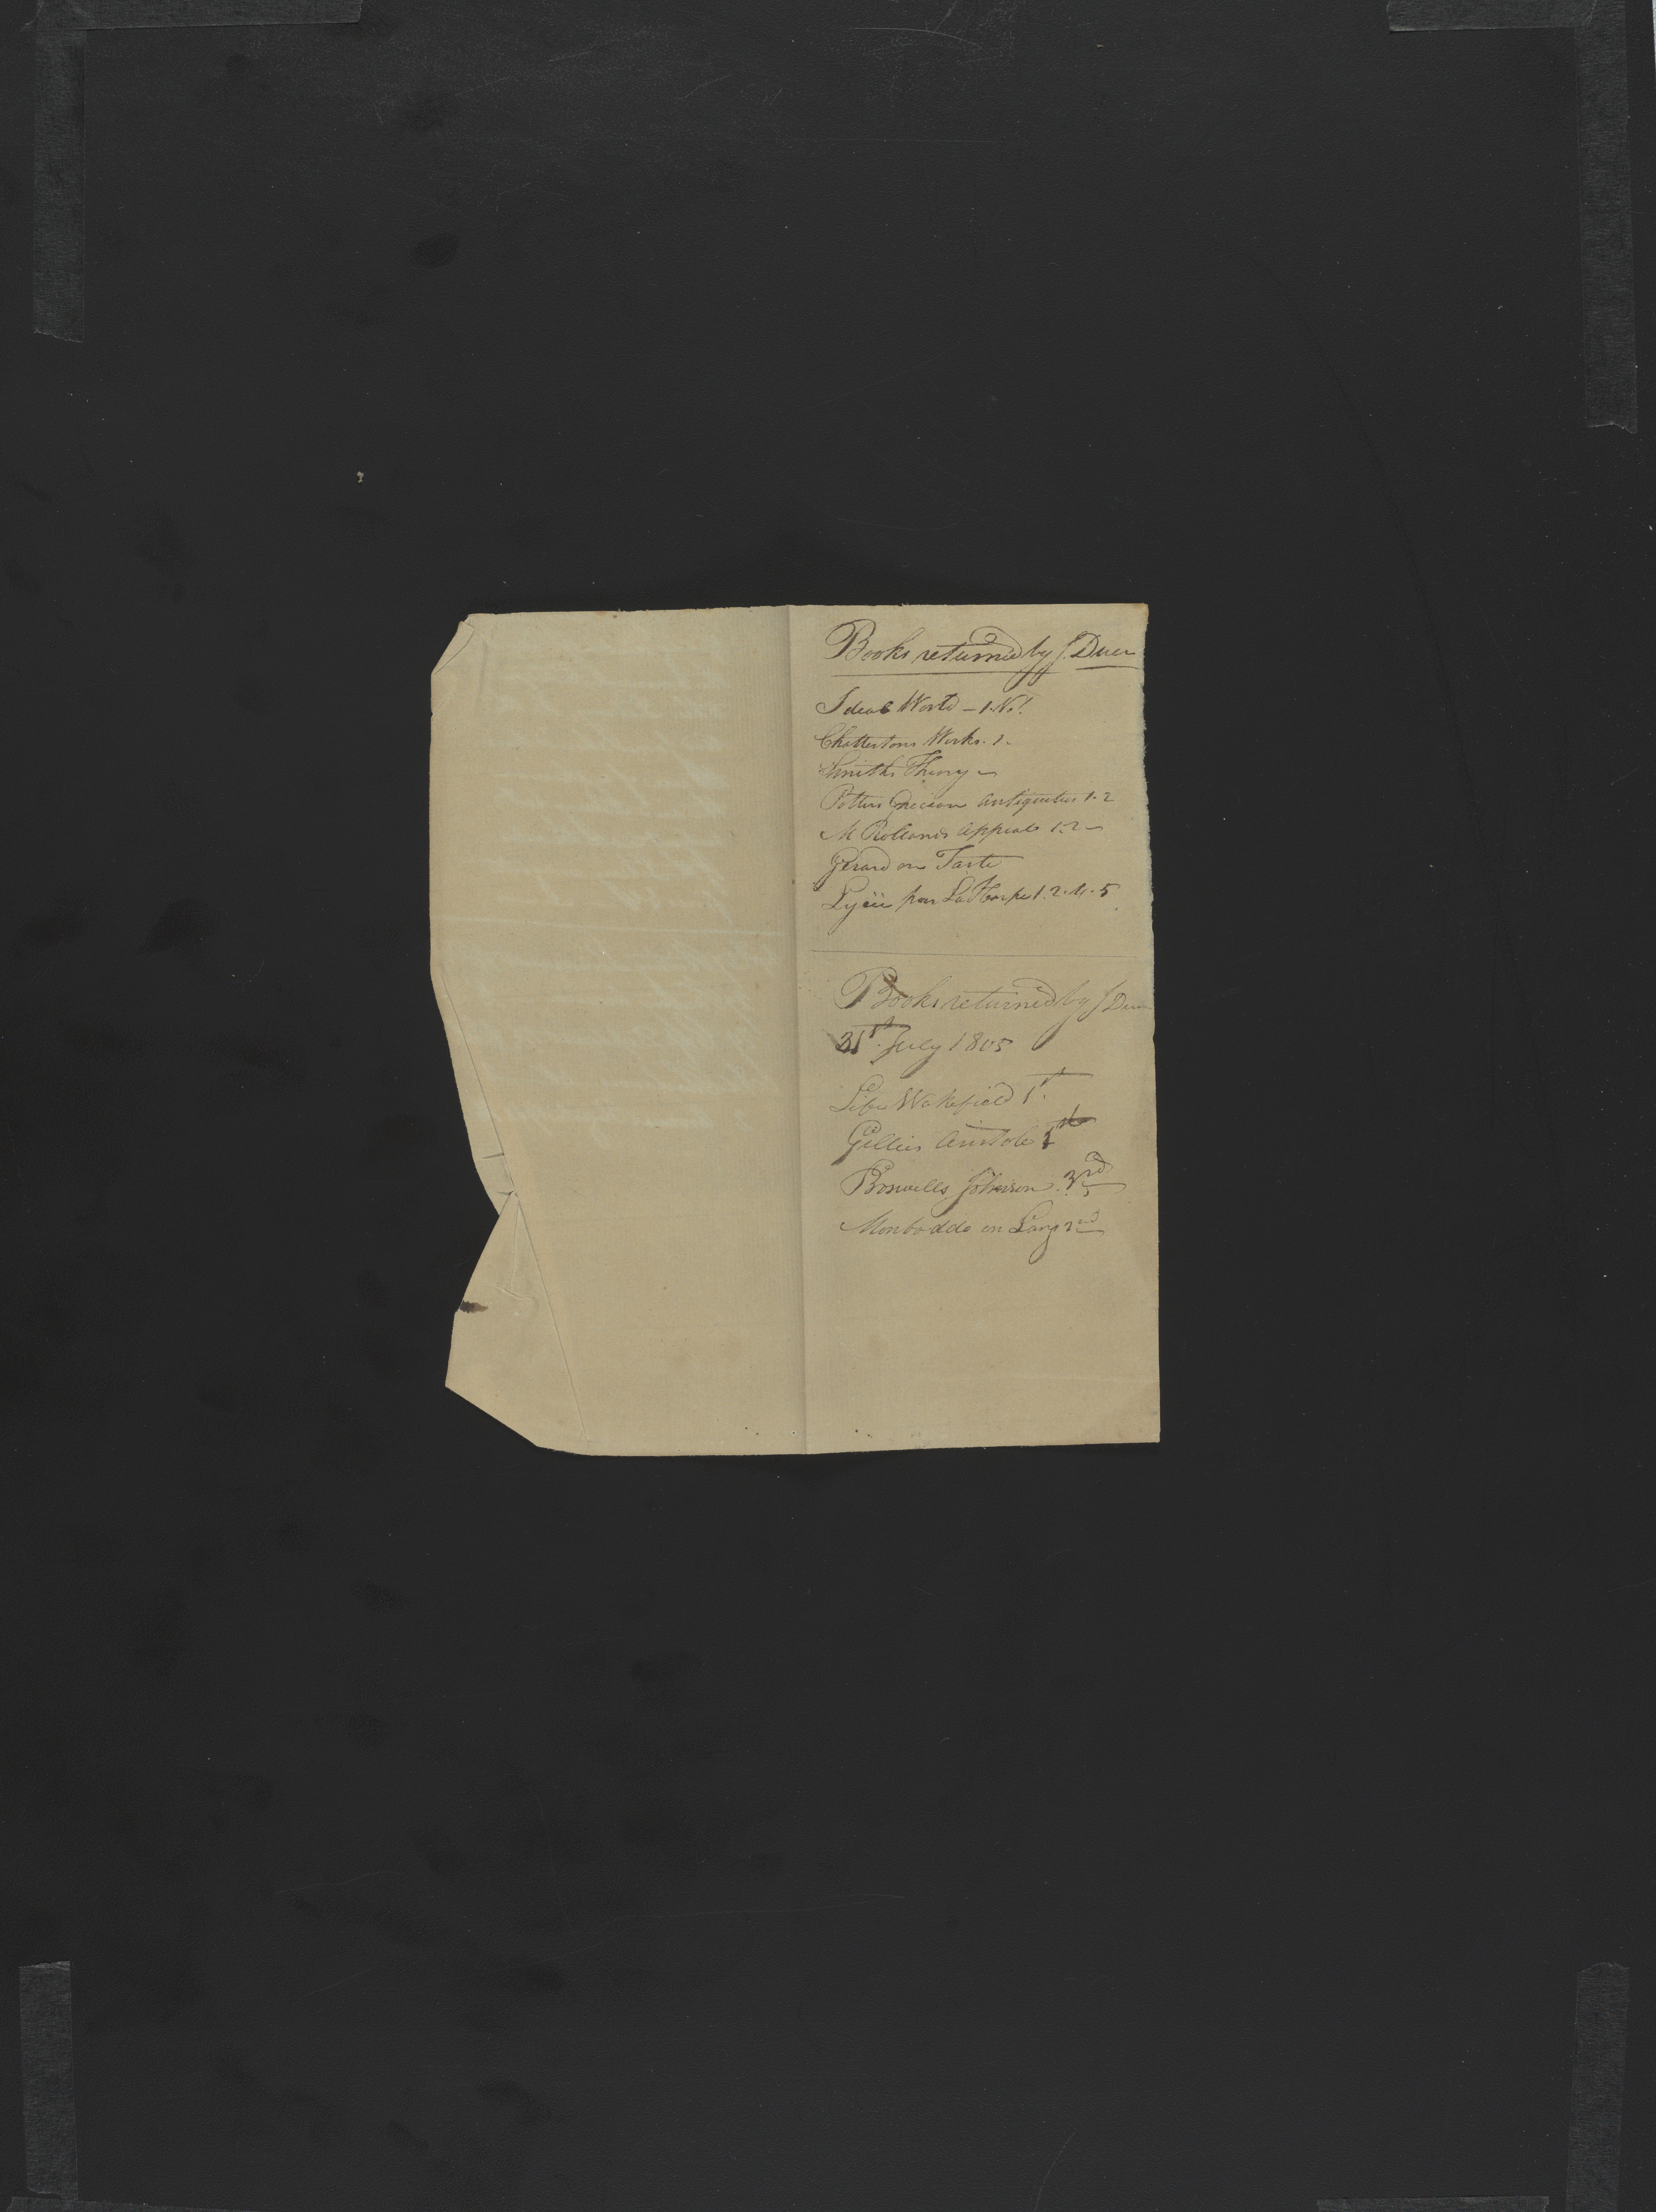 Books returned by J. Duer
Ideal World — 1. Vol
Chattertons Works. 1.
Smiths Theory —
Potters Grecian Antiquities 1. 2
M Rollands Appeal 1. 2 —
Gerard on Taste
Lyceé par La Harpe 1. 2. 4. 5
Books returned by J Duer
31st. July 1805
Life Wakefield 1st.
Gillies Aristotle 1st
Boswells Johnson. 3rd
Monboddo on Lang 2nd